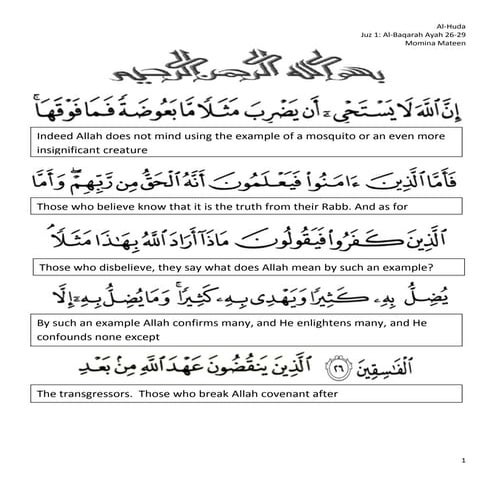 Al-Huda
Juz 1: Al-Baqarah Ayah 26-29
Momina Mateen
بسم الله الرحمن الرحيم
إِنَّ اللَّهَ لَا يَسْتَحْيِۦٓ أَن يَضْرِبَ مَثَلًا مَّا بَعُوضَةً فَمَا فَوْقَهَا ۚ
Indeed Allah does not mind using the example of a mosquito or an even more
insignificant creature
فَأَمَّا الَّذِينَ ءَامَنُوا فَيَعْلَمُونَ أَنَّهُ الْحَقُّ مِن رَّبِّهِمْ ۖ وَأَمَّا
Those who believe know that it is the truth from their Rabb. And as for
الَّذِينَ كَفَرُوا فَيَقُولُونَ مَاذَا أَرَادَ اللَّهُ بِهَٰذَا مَثَلًا ۘ
Those who disbelieve, they say what does Allah mean by such an example?
يُضِلُّ بِهِۦ كَثِيرًا وَيَهْدِي بِهِۦ كَثِيرًا ۚ وَمَا يُضِلُّ بِهِۦٓ إِلَّا
By such an example Allah confirms many, and He enlightens many, and He
confounds none except
الْفَاسِقِينَ ﴿٢٦﴾ الَّذِينَ يَنقُضُونَ عَهْدَ اللَّهِ مِنۢ بَعْدِ
The transgressors. Those who break Allah covenant after
1